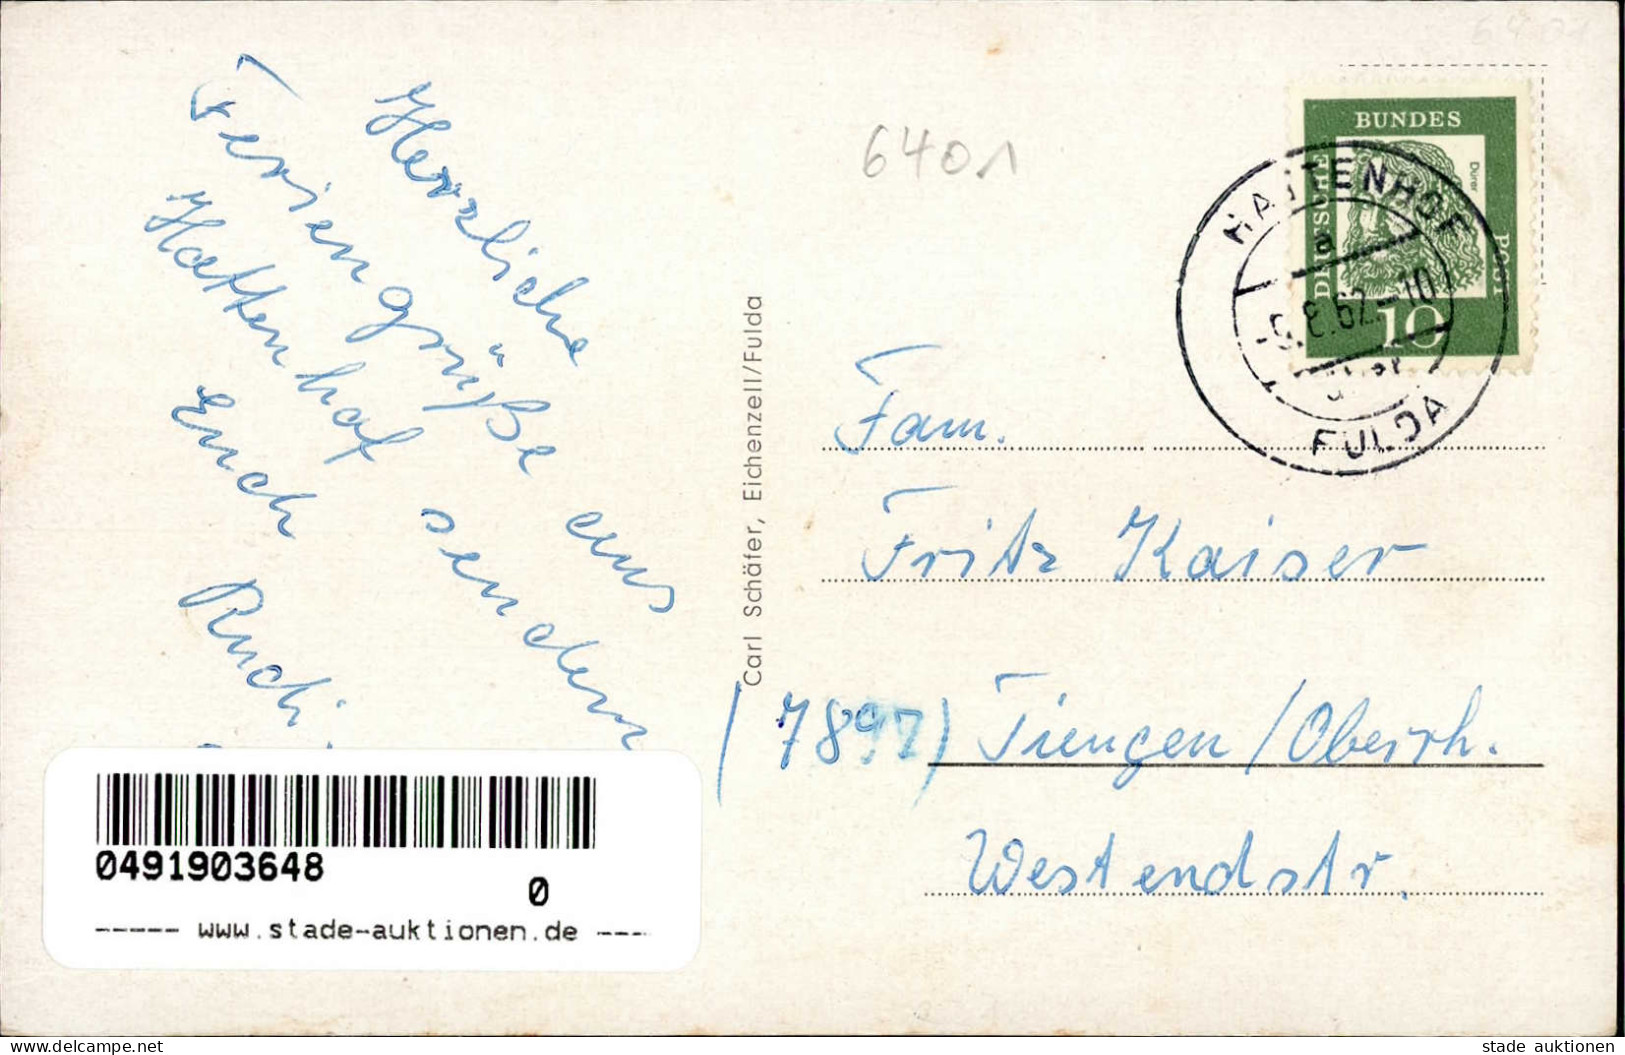 Herzliche
Feriengrüße aus
Hattenhof senden
Euch Rudi
Carl Schäfer, Eichenzell/Fulda
6401
DEUTSCHE
BUNDES
POST
Dürer
10
HATTENHOF
a
-5.8.62.-10
über
FULDA
Fam.
Fritz Kaiser
(7897) Tiengen/Oberrh.
Westendstr.
0491903648
0
----- www.stade-auktionen.de ----
www.delcampe.net
stade auktionen